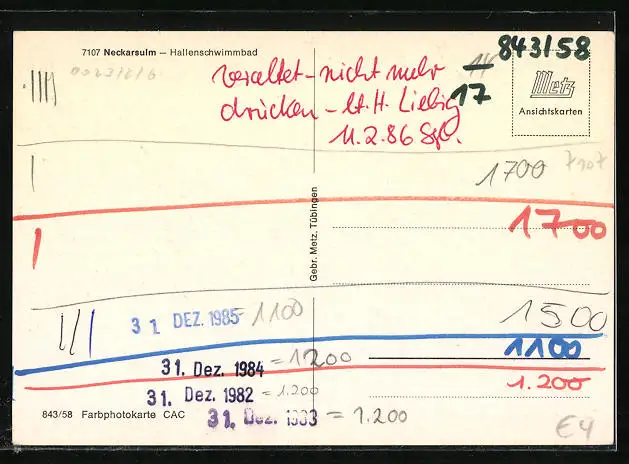 7107 Neckarsulm – Hallenschwimmbad
843/58
17
veraltet – nicht mehr
drucken – lt. H. Liebig
11.2.86
Metz
Ansichtskarten
1700
7107
1700
Gebr. Metz, Tübingen
1500
31. DEZ. 1985 – 1100
1100
31. Dez. 1984 = 1200
1.200
31. Dez. 1982 = 1.200
31. Dez. 1983 = 1.200
843/58 Farbphotokarte CAC
€4